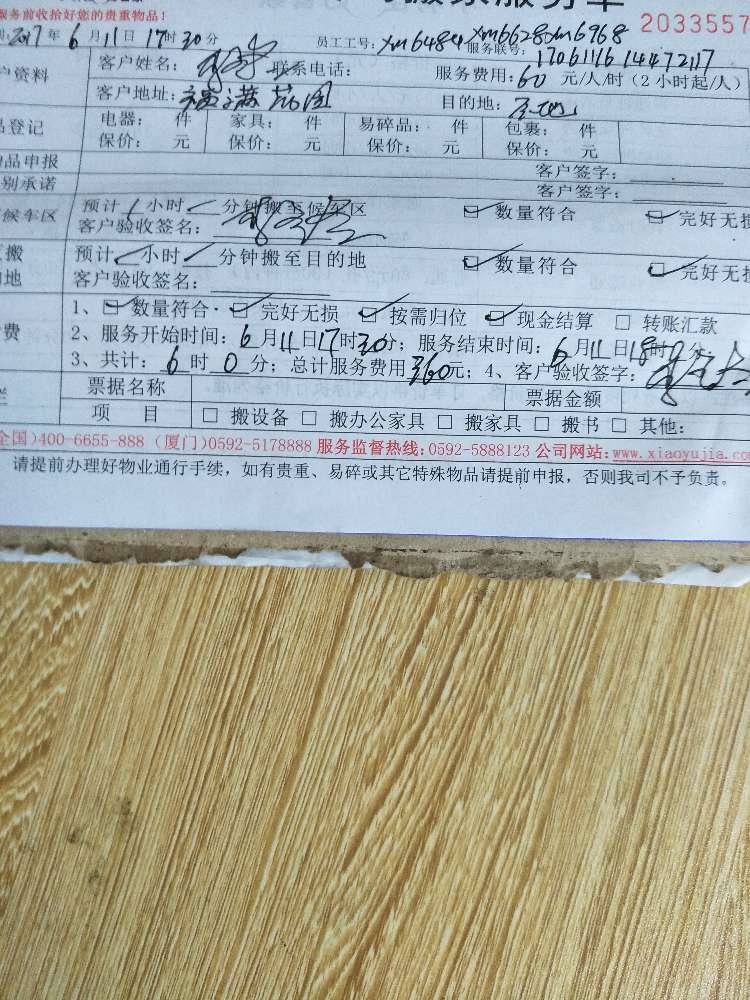 服务单
服务前收拾好您的贵重物品！ 2033557
2017年6月11日17时30分 员工工号：xm6484 xm6628 xm6968
服务联号：1706111614472117
户资料 客户姓名： 联系电话： 服务费用：60元/人/时（2小时起/人）
客户地址：福满花园 目的地：
品登记 电器： 件 家具： 件 易碎品： 件 包裹： 件
保价： 元 保价： 元 保价： 元 保价： 元
物品申报 客户签字：
别承诺 客户签字：
候车区 预计 小时 分钟搬至候车区 数量符合 完好无损
客户验收签名：
搬 预计 小时 分钟搬至目的地 数量符合 完好无损
地 客户验收签名：
1、 数量符合 完好无损 按需归位 现金结算 转账汇款
费 2、服务开始时间：6月11日17时30分；服务结束时间：6月11日18时 分
3、共计：6时0分；总计服务费用360元；4、客户验收签字：
票据名称 票据金额
项 目 搬设备 搬办公家具 搬家具 搬书 其他：
全国)400-6655-888 (厦门)0592-5178888 服务监督热线:0592-5888123 公司网站:www.xiaoyujia.com
请提前办理好物业通行手续，如有贵重、易碎或其它特殊物品请提前申报，否则我司不予负责。